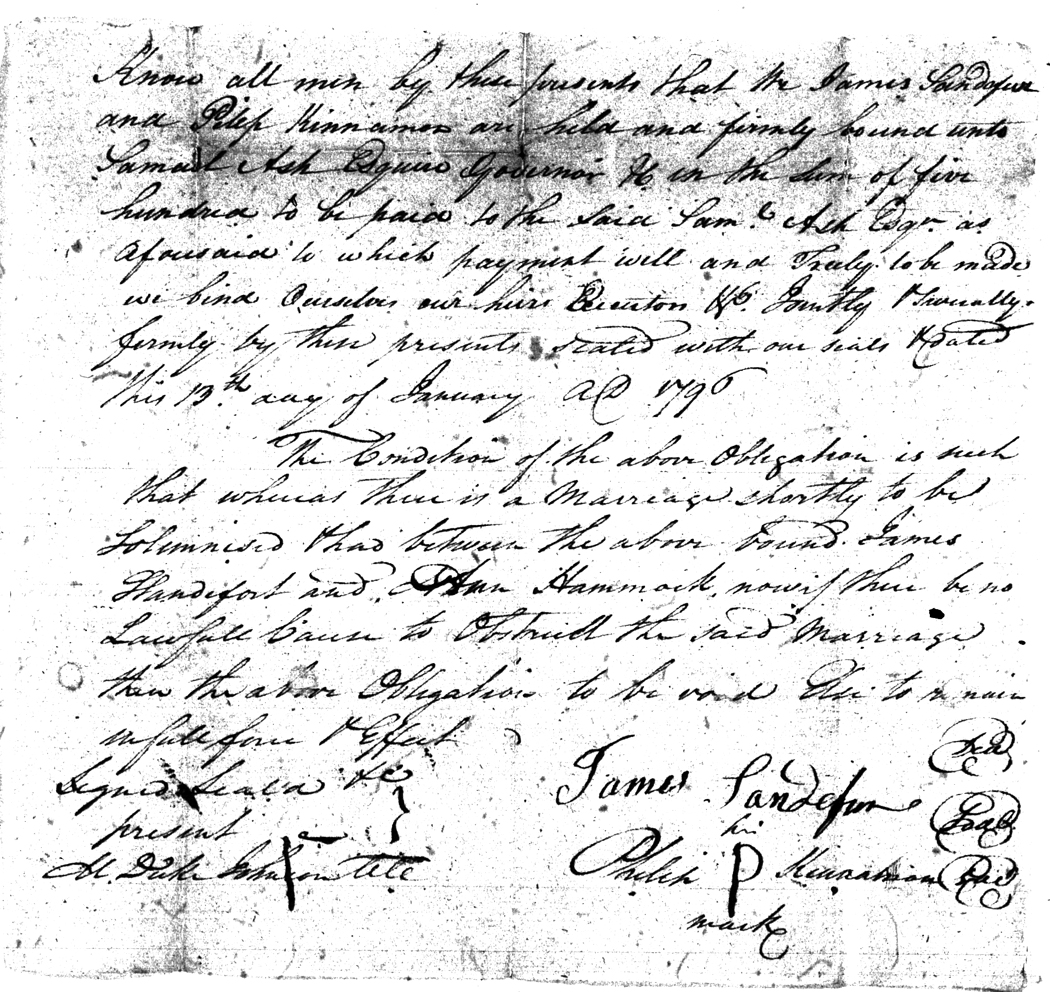 Know all men by these presents that We James Sandefur
and Pilip Kinnamon are held and firmly bound unto
Samuel Ash Esquire Governor &c in the sum of five
hundred to be paid to the said Saml. Ash Esqr. as
aforesaid to which payment well and Truly to be made
we bind Ourselves our heirs Executors &c. Jointly & Severally
firmly by these presents sealed with our seals & dated
this 13th. day of January AD 1796
The Condition of the above Obligation is such
that whereas there is a Marriage shortly to be
Solemnised & had between the above bound James
Handifort and Ann Hammock, now if there be no
Lawfull Cause to Obstruct the said Marriage
then the above Obligation to be void Else to remain
in full force & Effect
Signed Seald &c
present
James Sandefur Seal
his Seal
M. Duke Johnson Philip P Kinnamon Seal
mark